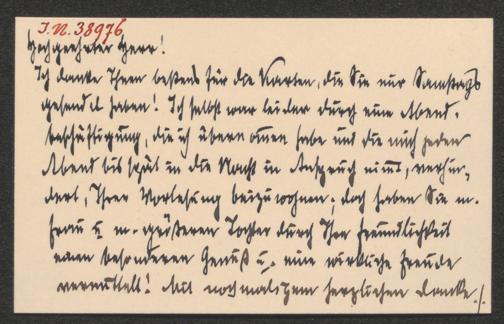 I.N. 38976
Hochgeehrter Herr!
Ich danke Ihnen bestens für die Karten, die Sie mir Samstags
gesendet haben! Ich selbst war leider durch eine Abend-
beschäftigung, die ich übernommen habe und die mich jeden
Abend bis spät in die Nacht in Anspruch nimmt, verhin-
dert, Ihrer Vorlesung beizuwohnen. doch haben Sie m.
Frau u. m. größeren Tochter durch Ihre Freundlichkeit
einen besonderen Genuß u. eine wirkliche Freude
vermittelt! Mit nochmaligem herzlichen Danke ./.